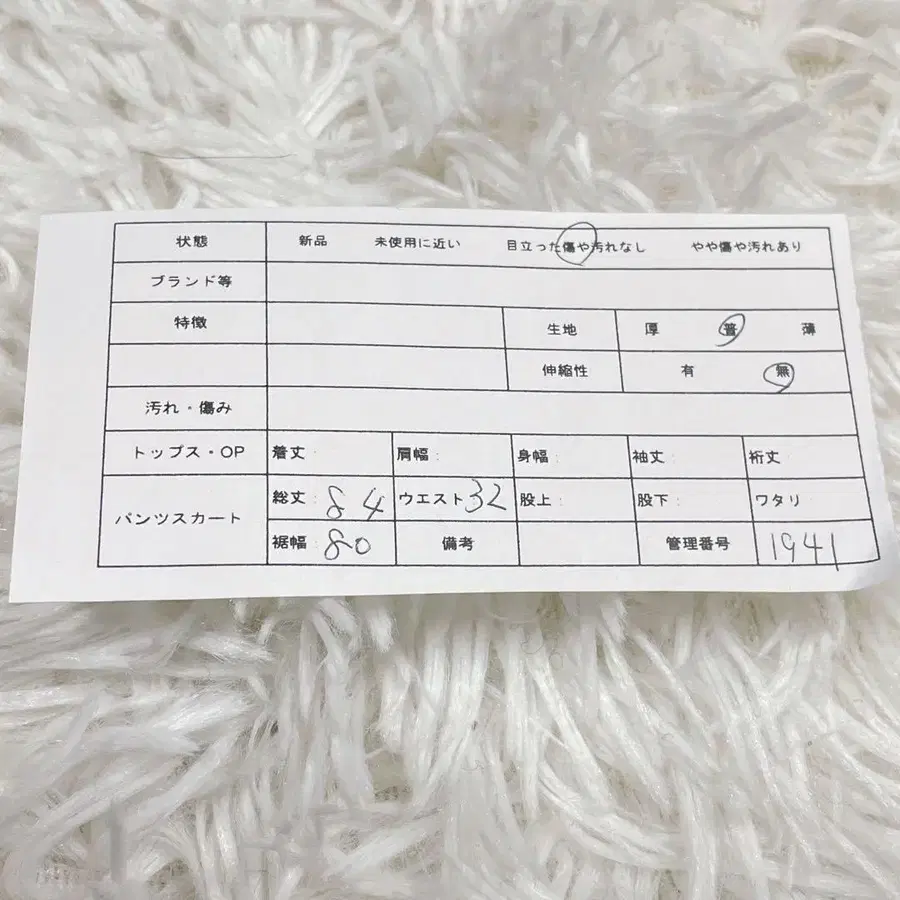 状態 新品 未使用に近い 目立った傷や汚れなし やや傷や汚れあり
ブランド等
特徴 生地 厚 普 薄
伸縮性 有 無
汚れ・傷み
トップス・OP 着丈: 肩幅: 身幅: 袖丈: 裄丈
パンツスカート 総丈: 84 ウエスト: 32 股上: 股下: ワタリ
裾幅: 80 備考 管理番号 1941